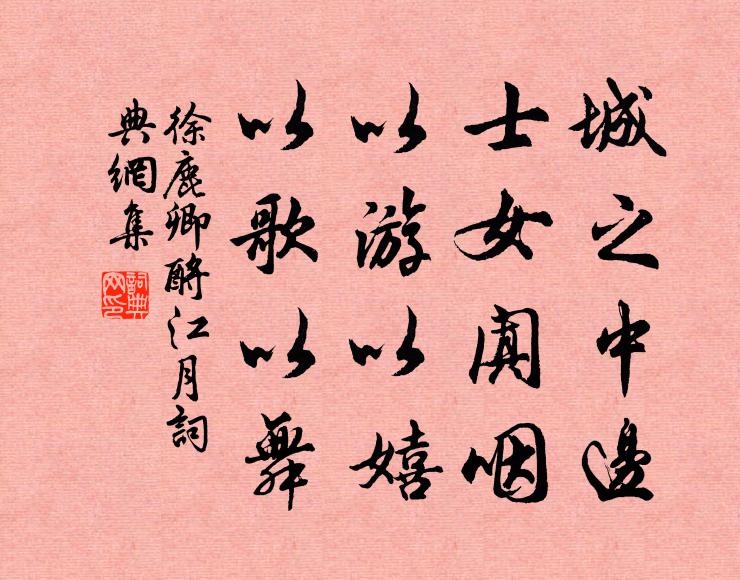 城之中邊
士女闐咽
以游以嬉
以歌以舞
徐鹿卿酹江月詞
典網集
詞典网印